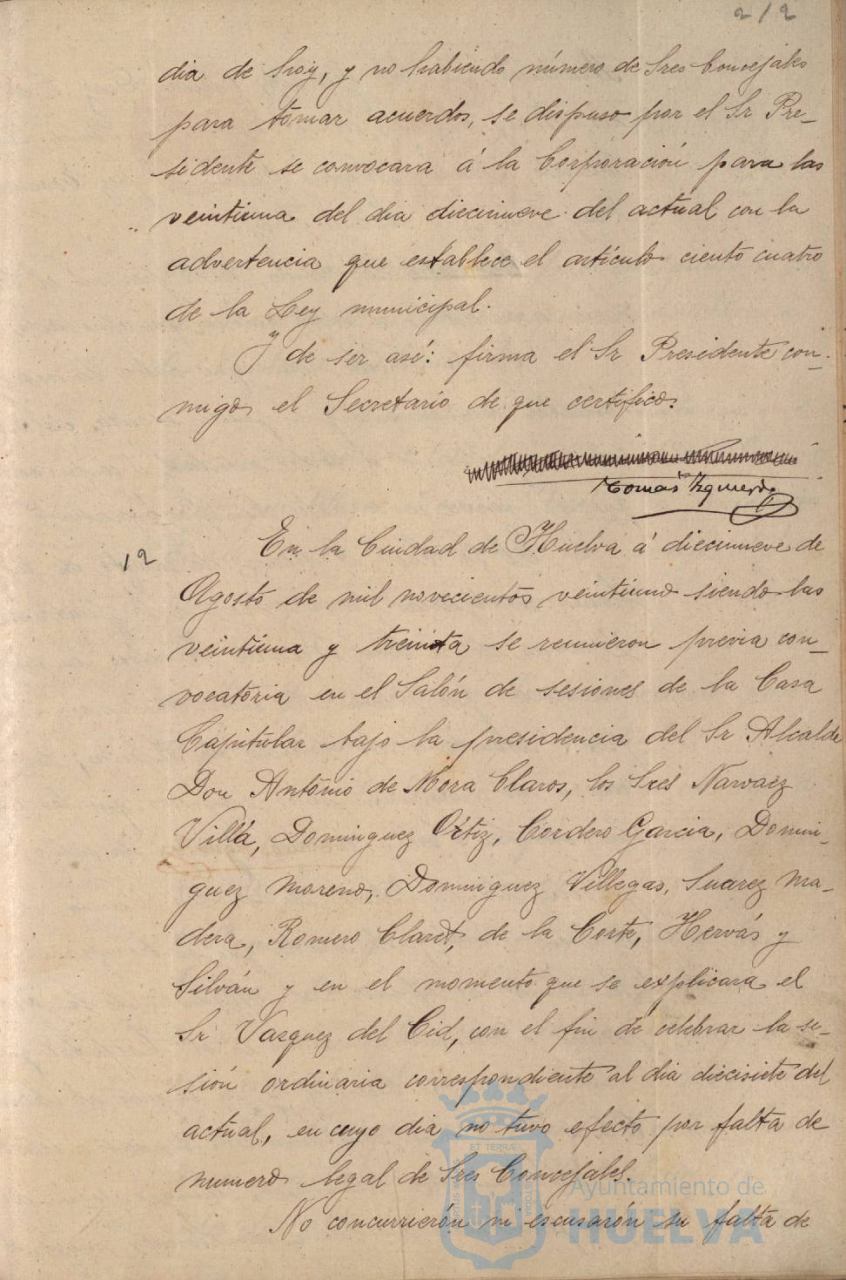 212
dia de hoy, y no habiendo número de Sres Concejales
para tomar acuerdos, se dispuso por el Sr Pre-
sidente se convocara á la Corporación para las
veintiuna del dia diecinueve del actual con la
advertencia que establece el artículo ciento cuatro
de la Ley municipal.
Y de ser asé: firma el Sr Presidente con-
migo el Secretario de que certifico.
Tomás Izquierdo
12
En la Ciudad de Huelva á diecinueve de
Agosto de mil novecientos veintiuno siendo las
veintiuna y treinta se reunieron previa con-
vocatoria en el Salón de sesiones de la Casa
Capitular bajo la presidencia del Sr Alcalde
Don Antonio de Mora Claros, los Sres Narvaez
Villá, Dominguez Ortiz, Cordero Garcia, Domin-
guez Moreno, Dominguez Villegas, Suarez Ma-
dera, Romero Claret, de la Corte, Hervás y
Silván y en el momento que se explicara el
Sr Vazquez del Cid, con el fin de celebrar la se-
sión ordinaria correspondiente al dia diecisiete del
actual, en cuyo dia no tuvo efecto por falta de
numero legal de Sres Concejales.
No concurrierón ni escusarón su falta de
Ayuntamiento de
HUELVA